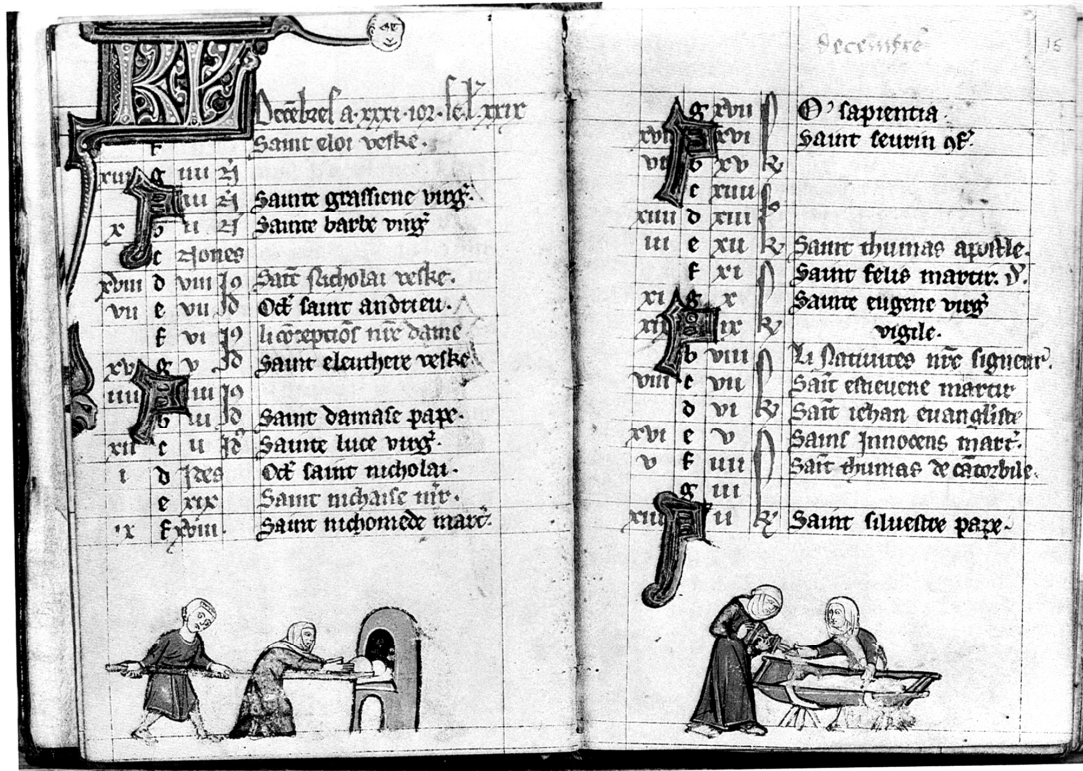 KL
Decēbres a · xxxi · iors · le · l · xxix
f Saint eloi veske ·
xiii g iiii N̄
A iii N̄ Sainte grassiene virg̃ ·
x b ii N̄ Sainte barbe virg̃
c Nones
xviii d viii Id Sait̄ Nicholai veske ·
vii e vii Id Oct̃ saint andrieu ·
f vi Id li cōceptiōs nr̄e dame
xv g v Id Saint eleuthere veske
iiii A iiii Id
b iii Id Saint damase pape ·
xii c ii Id Sainte luce virg̃ ·
i d Ides Oct̃ saint nicholai ·
e xix Saint nichaise mr̄ ·
ix f xviii Saint nichomede mart̃ ·
decembre
15
g xvii O sapientia ·
xvii A xvi Saint seurin 9f̃ ·
vi b xv kl
c xiiii
xiiii d xiii
iii e xii kl Saint thumas apostle ·
f xi Saint felis martir ·
xi g x Sainte eugene virg̃
xix A ix kl vigile ·
b viii Li Nativites nr̄e signeur ·
viii c vii Sait̄ estievene martir
d vi kl Sait̄ iehan euangliste
xvi e v Sains Innocens mart̃ ·
v f iiii Sait̄ thumas de cātorbile ·
g iii
xiii A ii kl Saint silvestre pape ·